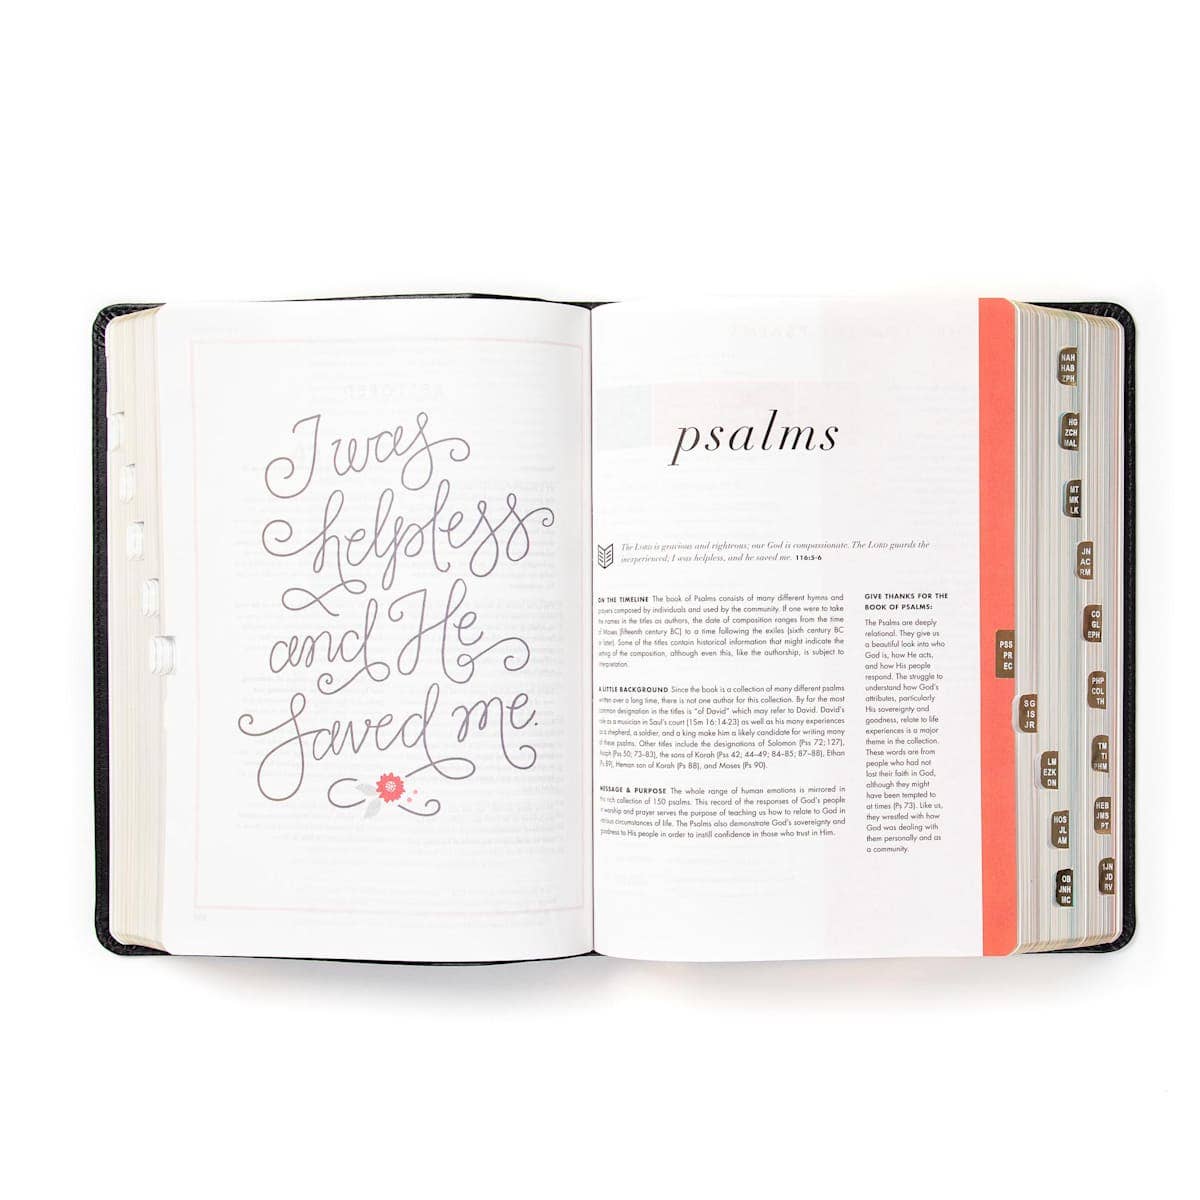 I was
helpless
and He
saved me.
psalms
The LORD is gracious and righteous; our God is compassionate. The LORD guards the
inexperienced; I was helpless, and he saved me. 116:5-6
ON THE TIMELINE The book of Psalms consists of many different hymns and
prayers composed by individuals and used by the community. If one were to take
the names in the titles as authors, the date of composition ranges from the time
of Moses (fifteenth century BC) to a time following the exiles (sixth century BC
or later). Some of the titles contain historical information that might indicate the
setting of the composition, although even this, like the authorship, is subject to
interpretation.
A LITTLE BACKGROUND Since the book is a collection of many different psalms
written over a long time, there is not one author for this collection. By far the most
common designation in the titles is "of David" which may refer to David. David's
role as a musician in Saul's court (1Sm 16:14-23) as well as his many experiences
as a shepherd, a soldier, and a king make him a likely candidate for writing many
of these psalms. Other titles include the designations of Solomon (Pss 72; 127),
Asaph (Pss 50; 73–83), the sons of Korah (Pss 42; 44–49; 84–85; 87–88), Ethan
(Ps 89), Heman son of Korah (Ps 88), and Moses (Ps 90).
MESSAGE & PURPOSE The whole range of human emotions is mirrored in
this rich collection of 150 psalms. This record of the responses of God's people
in worship and prayer serves the purpose of teaching us how to relate to God in
various circumstances of life. The Psalms also demonstrate God's sovereignty and
goodness to His people in order to instill confidence in those who trust in Him.
GIVE THANKS FOR THE
BOOK OF PSALMS:
The Psalms are deeply
relational. They give us
a beautiful look into who
God is, how He acts,
and how His people
respond. The struggle to
understand how God's
attributes, particularly
His sovereignty and
goodness, relate to life
experiences is a major
theme in the collection.
These words are from
people who had not
lost their faith in God,
although they might
have been tempted to
at times (Ps 73). Like us,
they wrestled with how
God was dealing with
them personally and as
a community.
PSS
PR
EC
SG
IS
JR
LM
EZK
DN
HOS
JL
AM
OB
JNH
MC
NAH
HAB
ZPH
HG
ZCH
MAL
MT
MK
LK
JN
AC
RM
CO
GL
EPH
PHP
COL
TH
TM
TI
PHM
HEB
JMS
PT
1JN
JD
RV